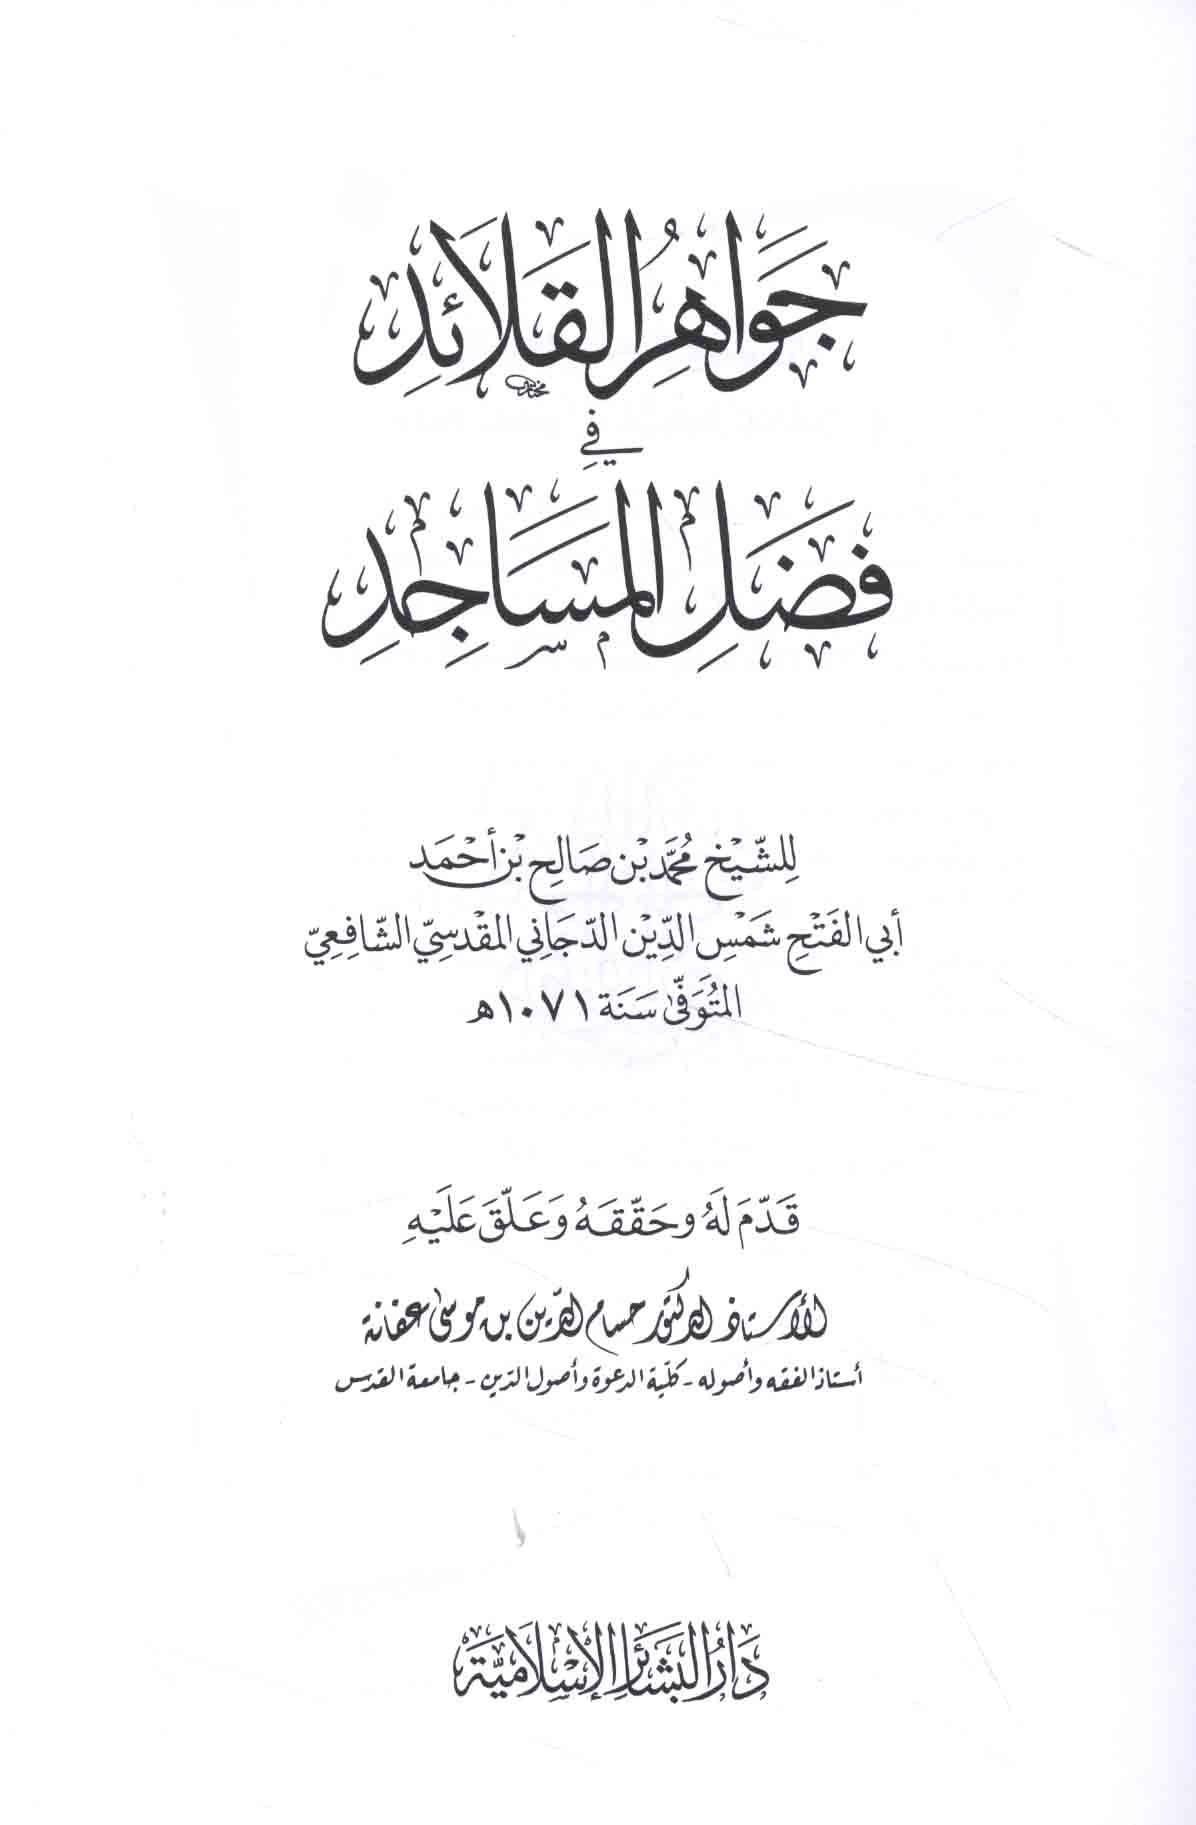 جَوَاهِرُ القَلَائِدِ
فِي
فَضْلِ المَسَاجِدِ
لِلشَّيْخ مُحَمَّد بْن صَالِح بْن أَحْمَد
أبي الفَتْحِ شَمْسِ الدِّيْن الدّجَاني المَقْدسِيّ الشَّافِعِيّ
المتُوَفّىٰ سَنَة ١٠٧١ه
قَدَّمَ لَهُ وحَقّقَهُ وَعَلّقَ عَلَيْهِ
الأستاذ الدكتور حسام الدّين بن موسىٰ عفانة
أستاذ الفقه وأصوله - كلّية الدعوة وأصول الدّين - جامعة القدس
دَارُ البَشَائِرِ الإِسْلَامِيَّة